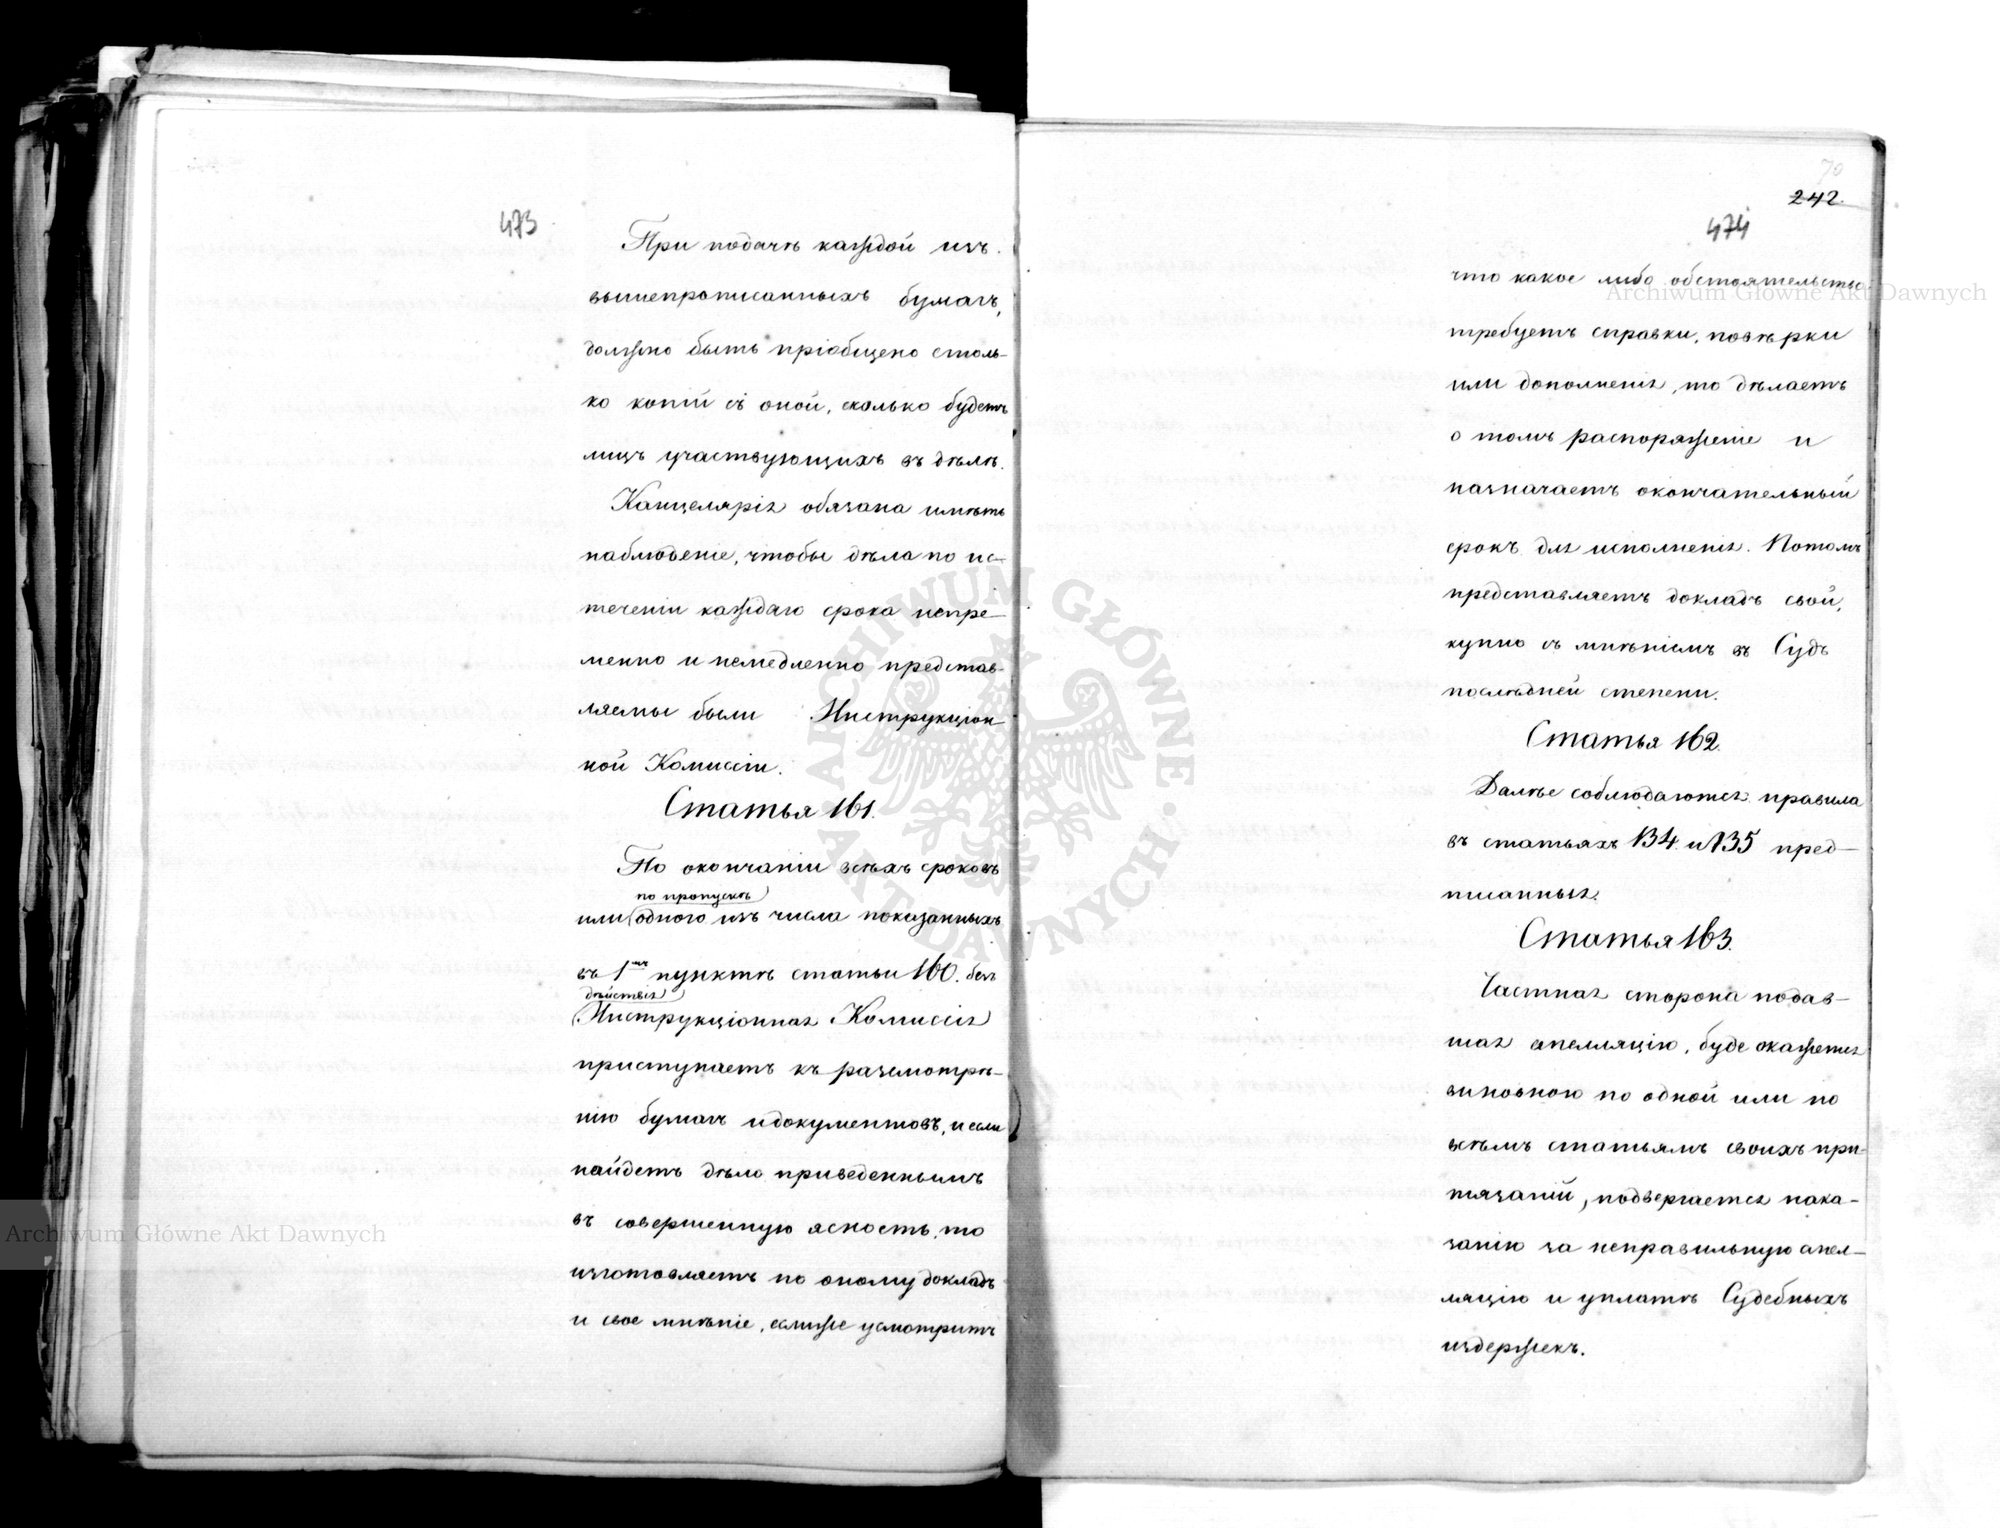 473
При подачѣ каждой изъ
вышепрописанныхъ бумагъ,
должно быть пріобщено столь-
ко копій съ оной, сколько будетъ
лицъ участвующихъ въ дѣлѣ.
Канцелярія обязана имѣть
наблюденіе, чтобы дѣла по ис-
теченіи каждаго срока непре-
менно и немедленно представ-
ляемы были Инструкціон
ной Комиссіи.
Статья 161.
По окончаніи всѣхъ сроковъ
по пропускѣ
или одного изъ числа показанныхъ
въ 1мъ пунктѣ статьи 160. безъ
дѣйствія
Инструкціонная Комиссія
приступаетъ къ разсмотрѣ-
нію бумагъ и документовъ, и если
найдетъ дѣло приведеннымъ
въ совершенную ясность, то
изготовляетъ по оному докладъ
и свое мнѣніе, если же усмотритъ
70
242.
474
что какое либо обстоятельство
требуетъ справки, повѣрки
или дополненія, то дѣлаетъ
о томъ распоряженіе и
назначаетъ окончательный
срокъ для исполненія. Потомъ
представляетъ докладъ свой,
купно съ мнѣніемъ въ Судъ
послѣдней степени.
Статья 162.
Далѣе соблюдаются правила
въ статьяхъ 134 и 135 пред-
писанныя.
Статья 163.
Частная сторона подав-
шая апелляцію, буде окажется
виновною по одной или по
всѣмъ статьямъ своихъ при-
тязаній, подвергается нака-
занію за неправильную апел-
ляцію и уплатѣ Судебныхъ
издержекъ.
Archiwum Główne Akt Dawnych
Archiwum Główne Akt Dawnych
ARCHIWUM GŁÓWNE · AKT DAWNYCH ·